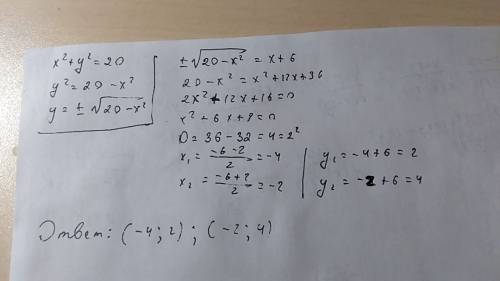 x² + y² = 20
y² = 20 - x²
y = ± √(20 - x²)
± √(20 - x²) = x + 6
20 - x² = x² + 12x + 36
2x² + 12x + 16 = 0
x² + 6x + 8 = 0
D = 36 - 32 = 4 = 2²
x₁ = (-6 - 2)/2 = -4
x₂ = (-6 + 2)/2 = -2
y₁ = -4 + 6 = 2
y₂ = -2 + 6 = 4
Ответ: (-4; 2) ; (-2; 4)